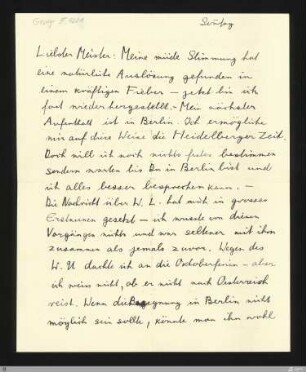 Sonntag
Liebster Meister: Meine müde Stimmung hat
eine natürliche Auslösung gefunden in
einem kräftigen Fieber – jetzt bin ich
fast wiederhergestellt. – Mein nächster
Aufenthalt ist in Berlin. Ich ermögliche
mir auf diese Weise die Heidelberger Zeit.
Doch will ich noch nichts festes bestimmen
sondern warten bis Du in Berlin bist und
ich alles besser besprechen kann. –
Die Nachricht über W. L. hat mich in grosses
Erstaunen gesetzt – ich wusste von diesen
Vorgängen nichts und war seltener mit ihm
zusammen als jemals zuvor. Wegen des
W. U dachte ich an die Oktoberferien – aber
ich weiss nicht, ob er nicht nach Oesterreich
reist. Wenn die Begegnung in Berlin nicht
möglich sein sollte, könnte man ihn wohl